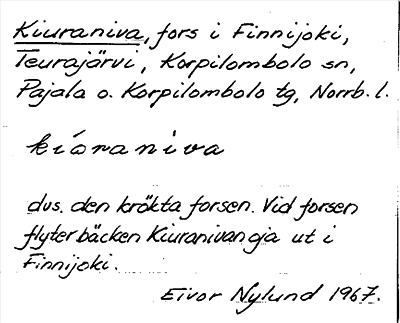 Kiuraniva, fors i Finnijoki,
Teurajärvi, Korpilombolo sn,
Pajala o. Korpilombolo tg, Norrb. l.
kíoraniva
dvs. den krökta forsen. Vid forsen
flyter bäcken Kiuranivanoja ut i
Finnijoki.
Eivor Nylund 1967.